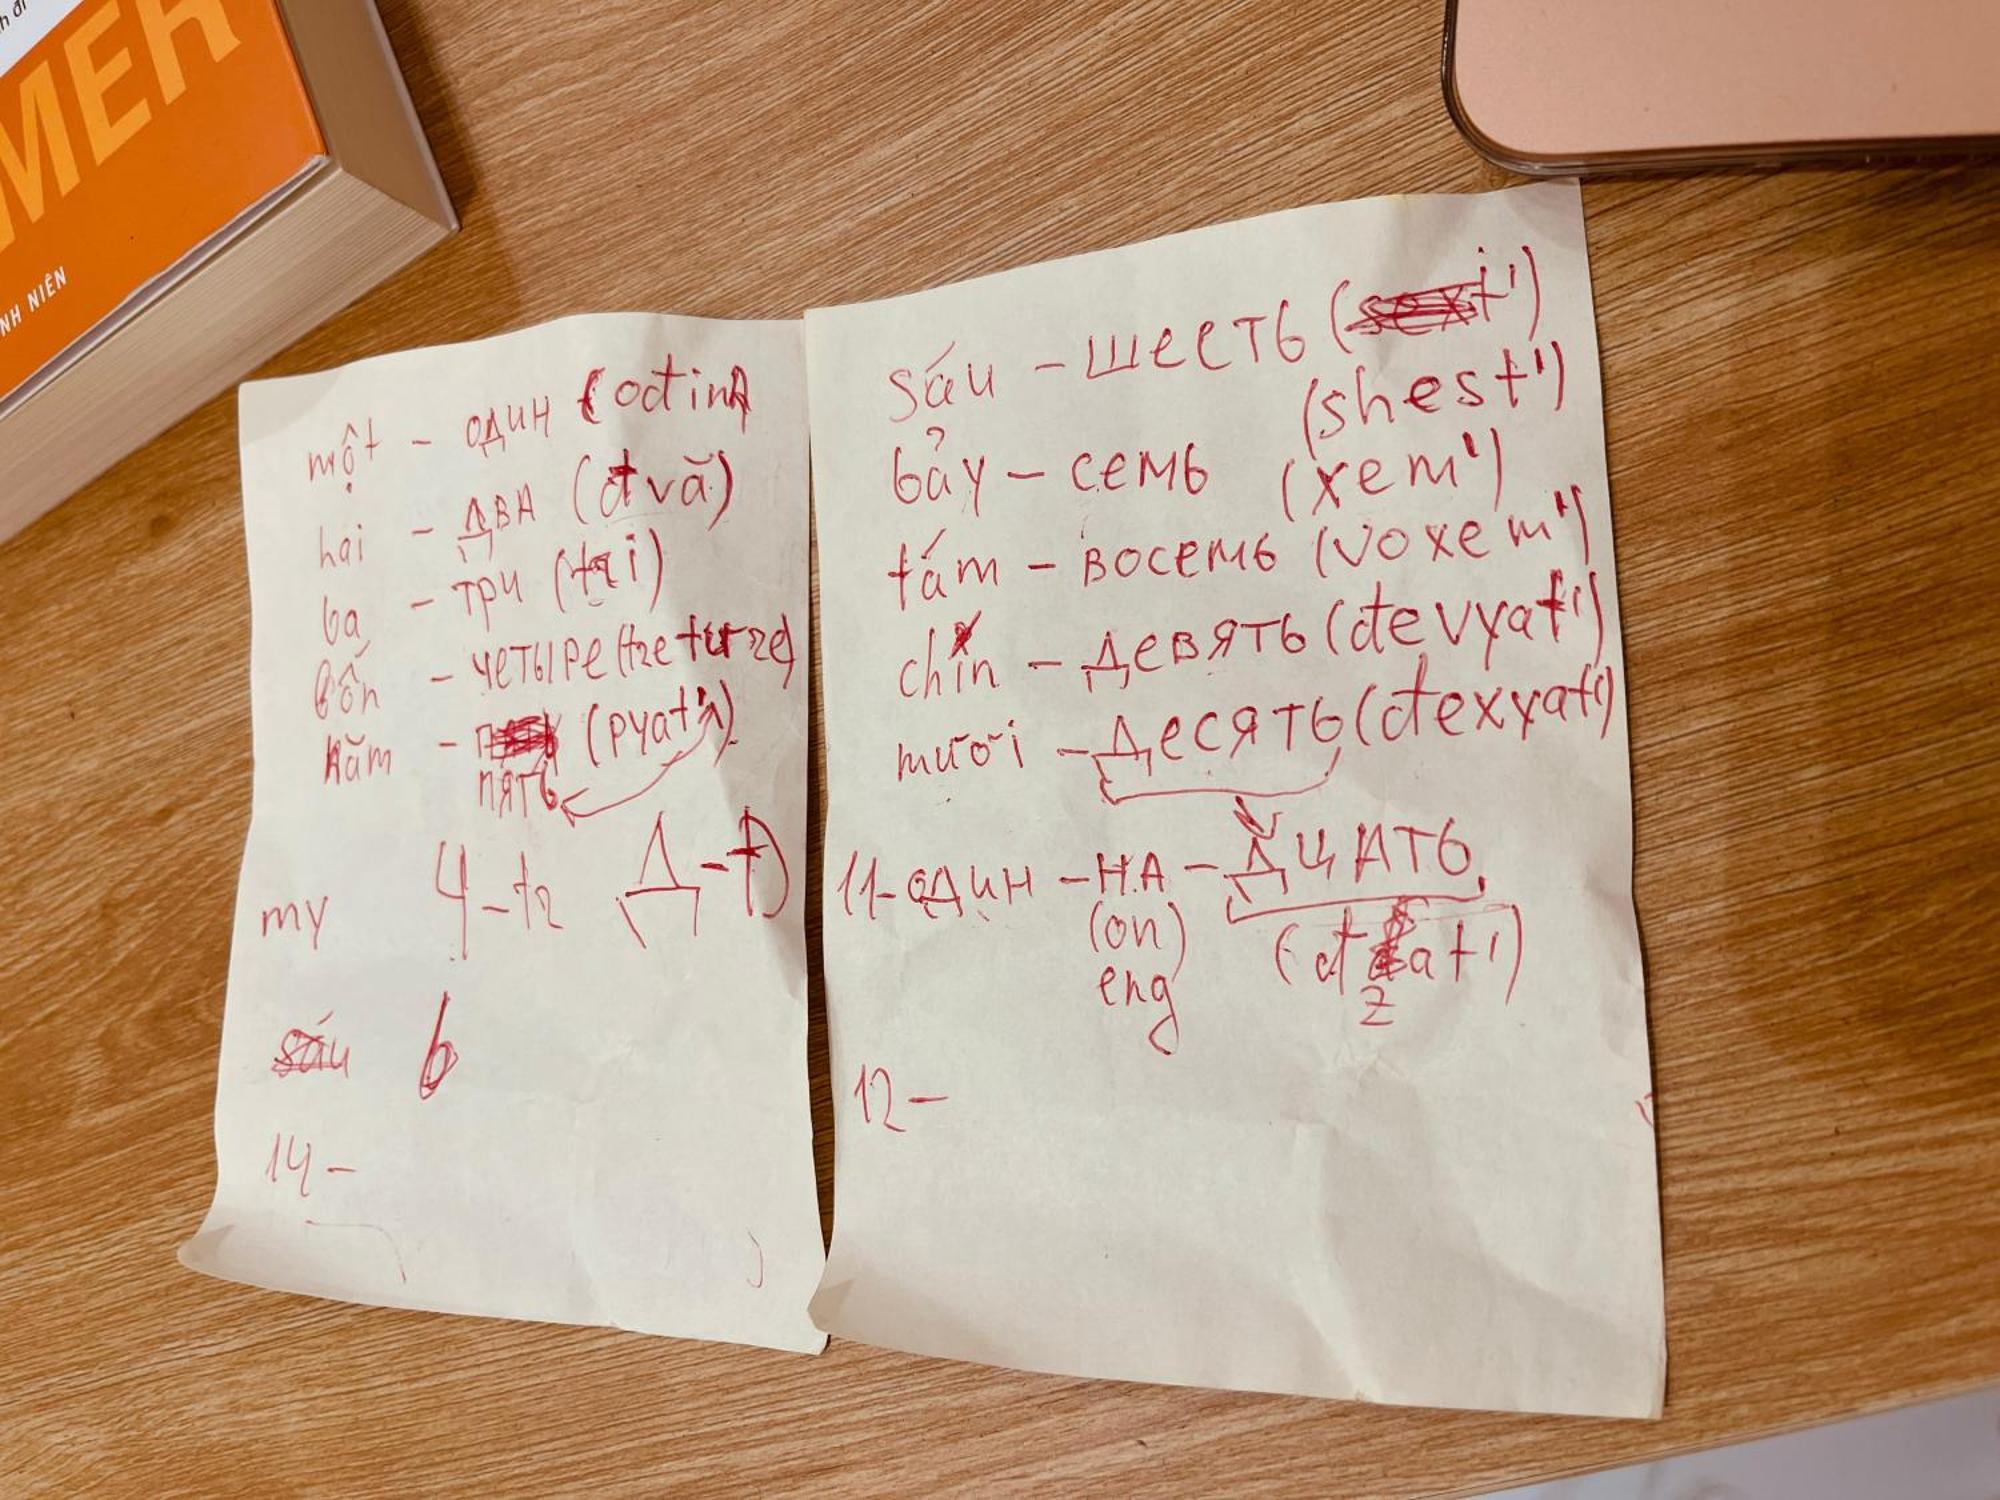 MER
NH NIÊN
một - один (ođinh)
hai - два (đvă)
ba - три (tri)
bốn - четыре
năm - (pyat')
пять
my ч - tr Д - Đ
sáu b
14 -
sáu - шесть
(shest')
bảy - семь (xem')
tám - восемь (voxem')
chín - девять (đevyat')
mười - десять (đexyat')
11 - один - на - дцать
(on) (đzat')
eng
12 -